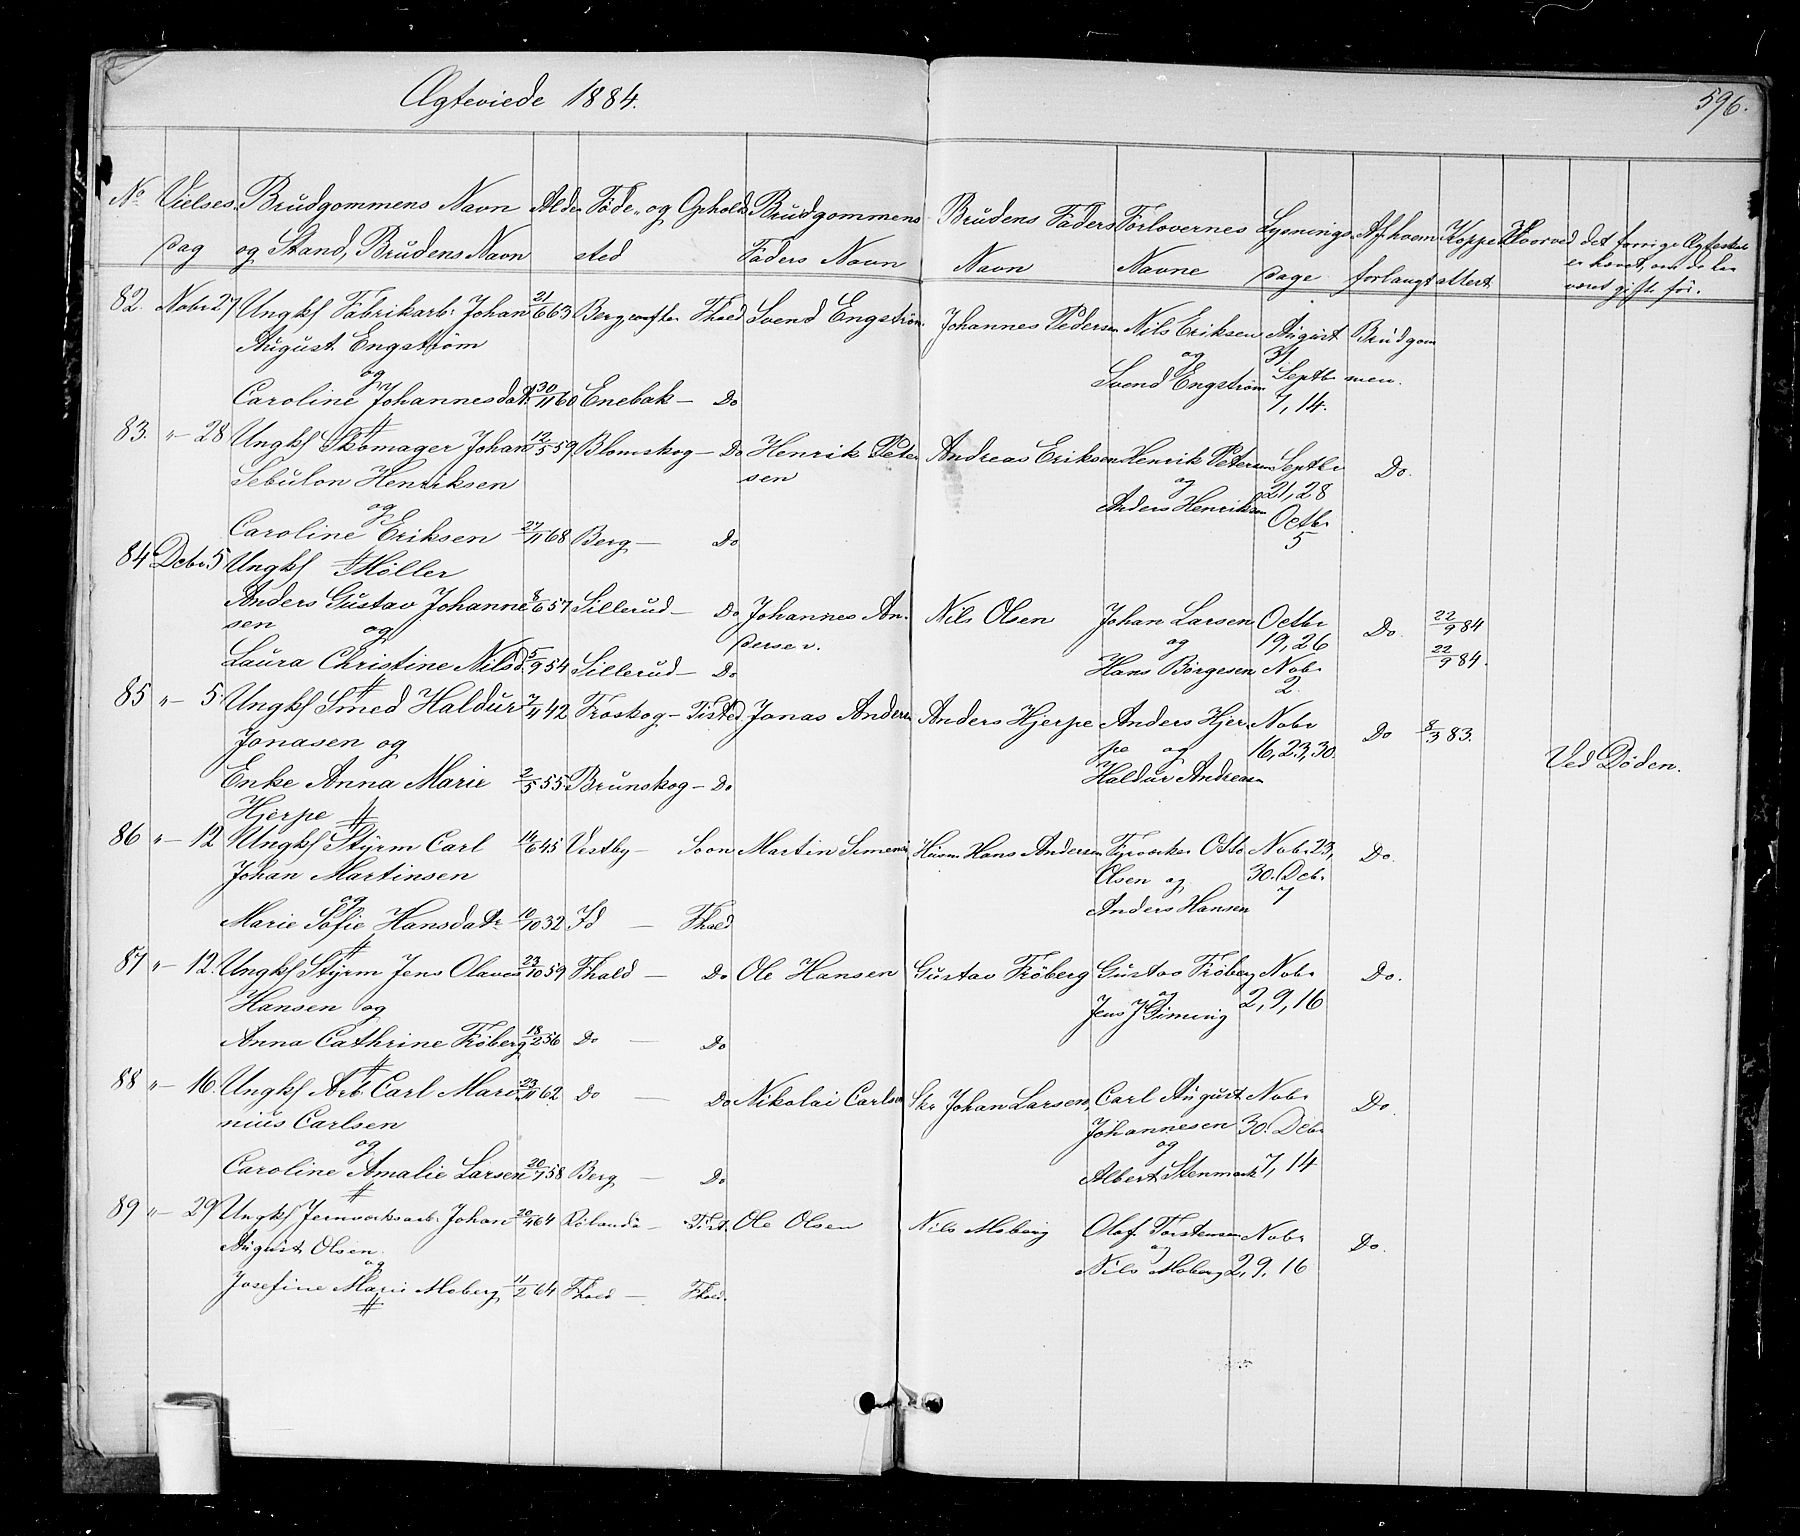 Ægteviede 1884.
596.
No Vielses- Brudgommens Navn Alder Føde- og Opholds Brudgommens Brudens Faders Forlovernes Lysnings Af hvem Koppe Hvorved det forrige Ægteskab
dag og Stand, Brudens Navn sted Faders Navn Navn Navne dage forlangt attest er hævet, om de har
været gifte før.
82. Nobr 27 Ungkf Fabrikarb: Johan 21/6 63 Fhald Svend Engstrøm Johannes Pedersen Nils Eriksen August Brudgom
August Engstrøm og 31
og Svend Engstrøm Septbr men.
Caroline Johannesdatr 30/11 60 Enebak — Do 7, 14.
83. "- 28 Ungkf Skomager Johan 12/5 59 Blomskog — Do Henrik Peter Andreas Eriksen Henrik Petersen Septbr Do.
Sebulon Henriksen sen og 21, 28
og Anders Henriksen Octbr
Caroline Eriksen 27/11 68 Berg — Do 5
84 Dcbr 5 Ungkf Møller
Anders Gustav Johanne 8/6 57 Sillerud — Do Johannes An- Nils Olsen Johan Larsen Octbr Do. 22/9 84
sen og dersen. og 19, 26
Laura Christine Nilsd. 5/9 54 Sillerud — Do Hans Børgesen Nobr 22/9 84.
2.
85 "- 5. Ungkf Smed Haldur 7/11 42 Froskog — Tisted Jonas Andersen Anders Hjerpe Anders Hjer Nobr Do 8/3 83.
Jonasen og pe og 16, 23, 30.
Enke Anna Marie 2/5 55 Brunskog — Do Haldur Andreasen Ved Døden.
Hjerpe
86 "- 12 Ungkf Styrm Carl 14/6 45 Vestby — Soon Martin Simensen Husm Hans Andersen Fyrvæker Otto Nobr 23, Do.
Johan Martinsen Olsen og 30. Dcbr
og Anders Hansen 7
Marie Sofie Hansdatr 10/10 32 Id — Fhald
87 "- 12. Ungkf Styrm Jens Olaves 23/10 59 Fhald — Do Ole Hansen Gustav Frøberg Gustav Frøberg Nobr Do.
Hansen og og 2, 9, 16
Anna Cathrine Frøberg 18/2 56 Do — Do Jens J
88 "- 16. Ungkf Arb. Carl Mari 23/11 62. Do — Do Nikolai Carlsen Skr Johan Larsen, Carl August Nobr Do.
nius Carlsen Johannesen 30. Dcbr
og og
Caroline Amalie Larsen 20/7 58 Berg — Do Albert Stenmark 7, 14
89 "- 29 Ungkf Jernværksarb. Johan 20/4 64 Rølanda — Tist. Ole Olsen Nils Moberg Olaf Torstensen Nobr Do.
August Olsen og 2, 9, 16
og Nils Moberg
Josefine Marie Moberg 11/2 64 Fhald — Fhald.